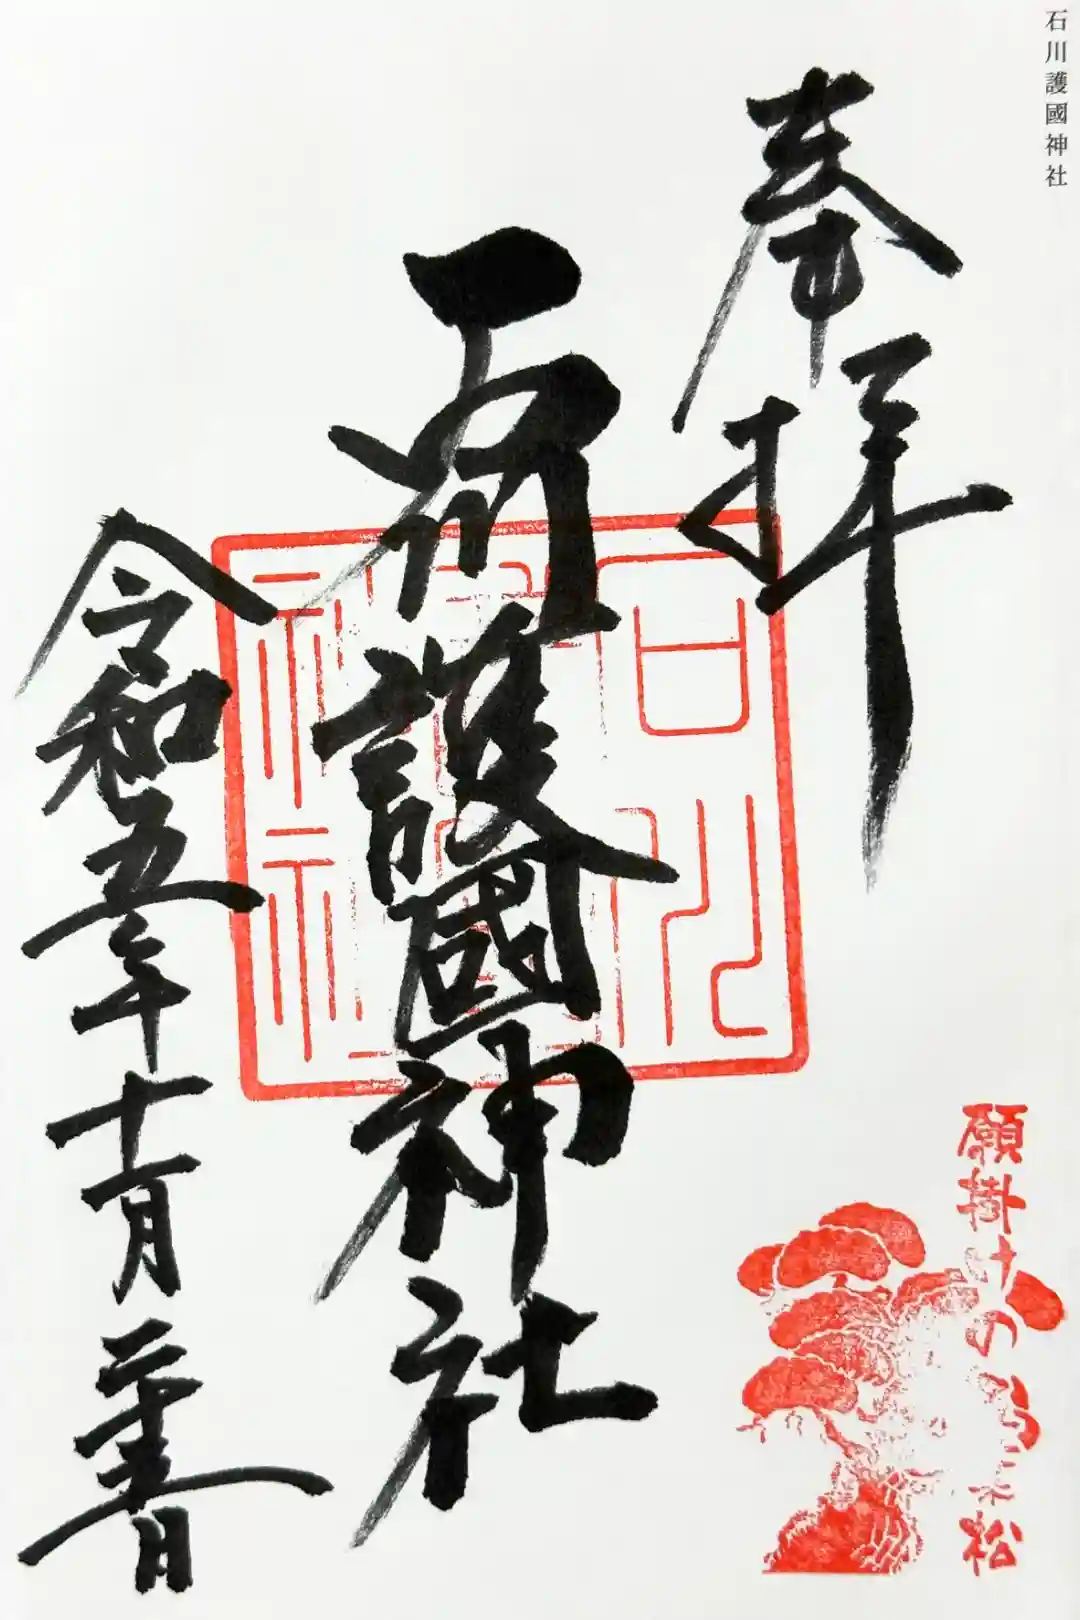 石川護國神社
奉拝
石川護國神社
令和五年十一月二十五日
石川
神社
願掛けの
松